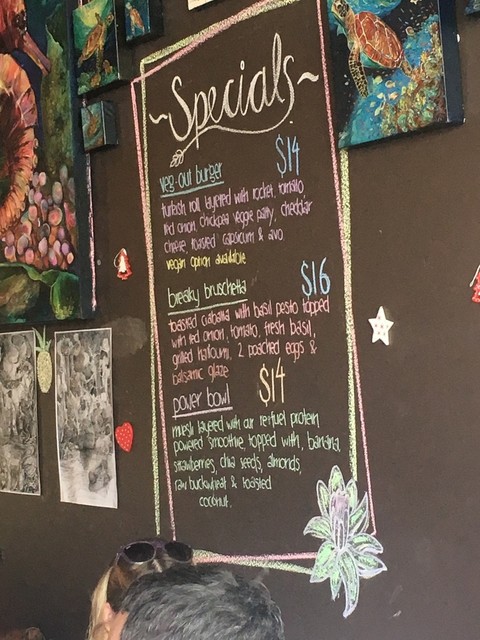 ~Specials~
veg-out burger $14
turkish roll layered with rocket, tomato,
red onion, chickpea veggie patty, cheddar
cheese, roasted capsicum & avo.
vegan option available
breaky bruschetta $16
toasted ciabatta with basil pesto topped
with red onion, tomato, fresh basil,
grilled halloumi, 2 poached eggs &
balsamic glaze
power bowl $14
muesli layered with our re:fuel protein
powered smoothie, topped with, banana,
strawberries, chia seeds, almonds,
raw buckwheat & toasted
coconut.